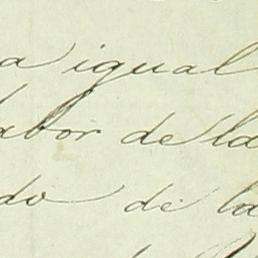 a igual
labor de la
do de la